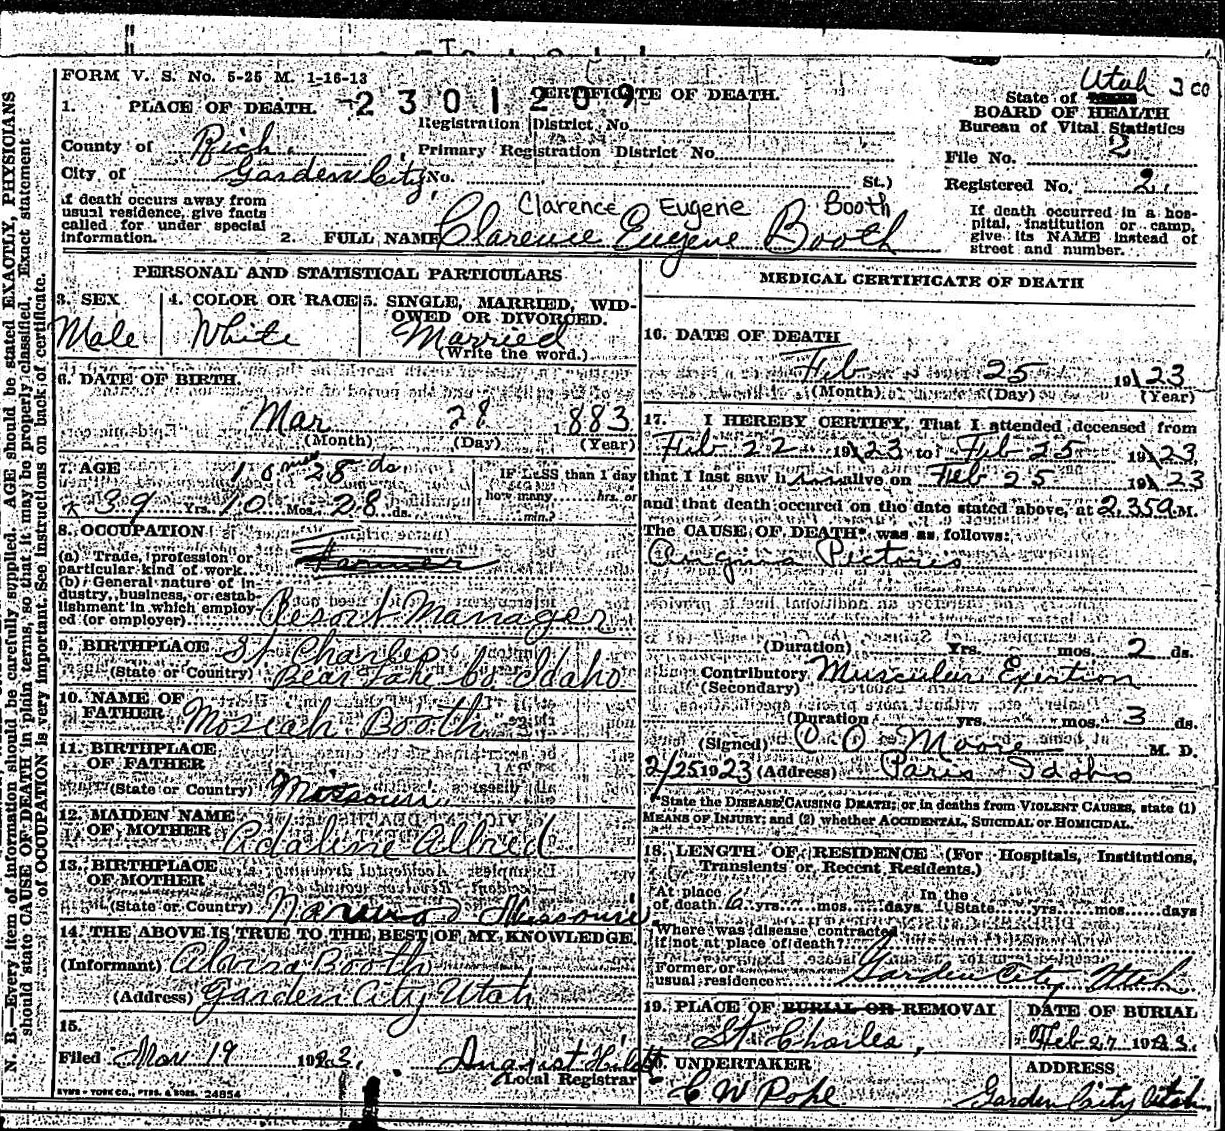 FORM V. S. No. 5-25 M. 1-16-13
1. PLACE OF DEATH.
2301209
CERTIFICATE OF DEATH.
Utah 3 co
State of
BOARD OF HEALTH
Bureau of Vital Statistics
File No. 2
Registered No. 2.
Registration District No.
County of Rich.
Primary Registration District No.
City of Garden City, No. St.)
If death occurs away from
usual residence, give facts
called for under special
information.
Clarence Eugene Booth
2. FULL NAME Clarence Eugene Booth
If death occurred in a hos-
pital, institution or camp,
give its NAME instead of
street and number.
N. B.—Every item of information should be carefully supplied. AGE should be stated EXACTLY, PHYSICIANS
should state CAUSE OF DEATH in plain terms, so that it may be properly classified. Exact statement
of OCCUPATION is very important. See instructions on back of certificate.
PERSONAL AND STATISTICAL PARTICULARS
3. SEX
Male
4. COLOR OR RACE
White
5. SINGLE, MARRIED, WID-
OWED OR DIVORCED.
Married
(Write the word.)
6. DATE OF BIRTH.
Mar 28 1883
(Month) (Day) (Year)
7. AGE
10 mos 28 ds
39 Yrs. 10 Mos. 28 ds.
IF LESS than 1 day
how many hrs. or
min.?
8. OCCUPATION
(a) Trade, profession or
particular kind of work.
Farmer
(b) General nature of in-
dustry, business, or estab-
lishment in which employ-
ed (or employer).
Resort Manager
9. BIRTHPLACE St Charles
(State or Country) Bear Lake Co Idaho
10. NAME OF
FATHER Mosiah Booth
11. BIRTHPLACE
OF FATHER
(State or Country) Missouri
12. MAIDEN NAME
OF MOTHER Adaline Allred
13. BIRTHPLACE
OF MOTHER
(State or Country) Missouri
14. THE ABOVE IS TRUE TO THE BEST OF MY KNOWLEDGE.
(Informant) Alvira Booth
(Address) Garden City Utah
15.
Filed Mar 19 1923. August
Local Registrar
24854
MEDICAL CERTIFICATE OF DEATH
16. DATE OF DEATH
Feb 25 1923
(Month) (Day) (Year)
17. I HEREBY CERTIFY, That I attended deceased from
Feb 22 1923 to Feb 25 1923
that I last saw him alive on Feb 25 1923
and that death occured on the date stated above, at 2.35 a M.
The CAUSE OF DEATH* was as follows:
Angina Pictoris
(Duration) Yrs. mos. 2 ds.
Contributory Muscular Exertion
(Secondary)
(Duration yrs. mos. 3 ds.
(Signed) O O Moore M. D.
2/25 1923 (Address) Paris Idaho
*State the DISEASE CAUSING DEATH; or, in deaths from VIOLENT CAUSES, state (1)
MEANS OF INJURY; and (2) whether ACCIDENTAL, SUICIDAL or HOMICIDAL.
18. LENGTH OF RESIDENCE (For Hospitals, Institutions,
Transients or Recent Residents.)
At place In the
of death 6 yrs. mos. days State yrs. mos. days
Where was disease contracted
if not at place of death?
Former or
usual residence Garden City Utah
19. PLACE OF BURIAL OR REMOVAL
St Charles,
DATE OF BURIAL
Feb 27 1923.
20. UNDERTAKER
C W Pope
ADDRESS
Garden City Utah